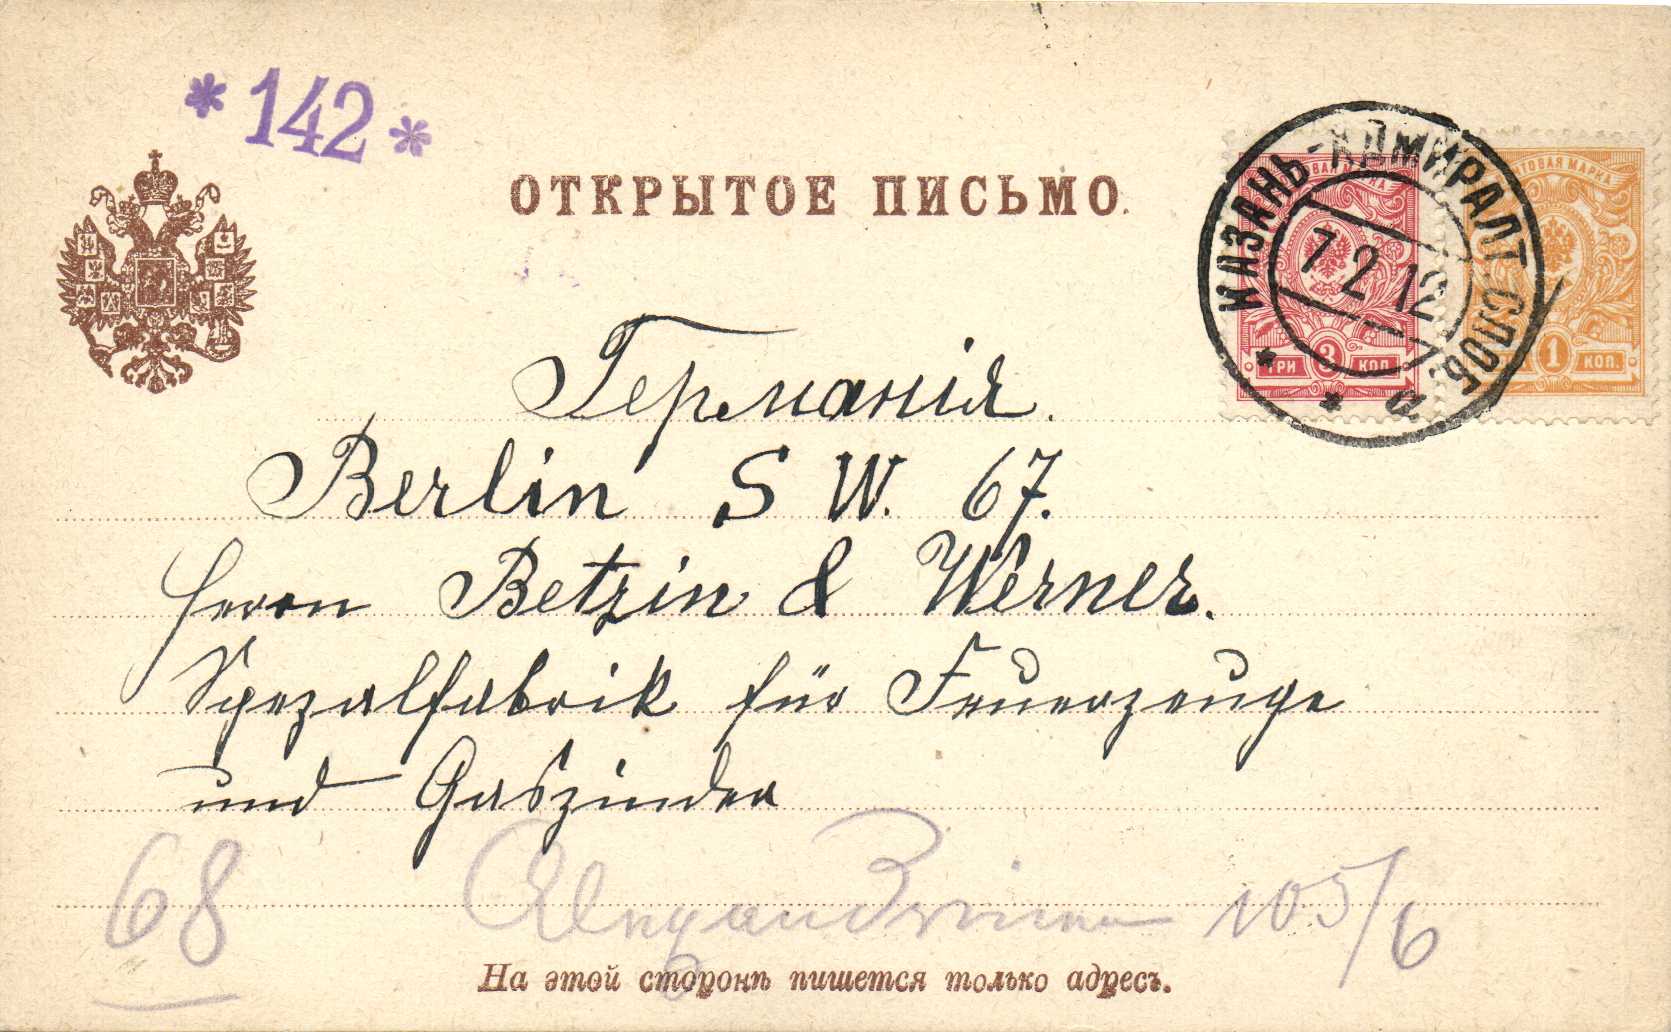 *142*
ОТКРЫТОЕ ПИСЬМО.
КАЗАНЬ-АДМИРАЛТ. СЛОБ.
7 2 12
ТРИ 3 КОП.
ПОЧТОВАЯ МАРКА
1 КОП.
Германія.
Berlin S W. 67.
Herren Betzin & Werner.
Spezalfabrik für Feuerzeuge
und Gaszünder
68
Alexandrinen 105/6
На этой сторонѣ пишется только адресъ.